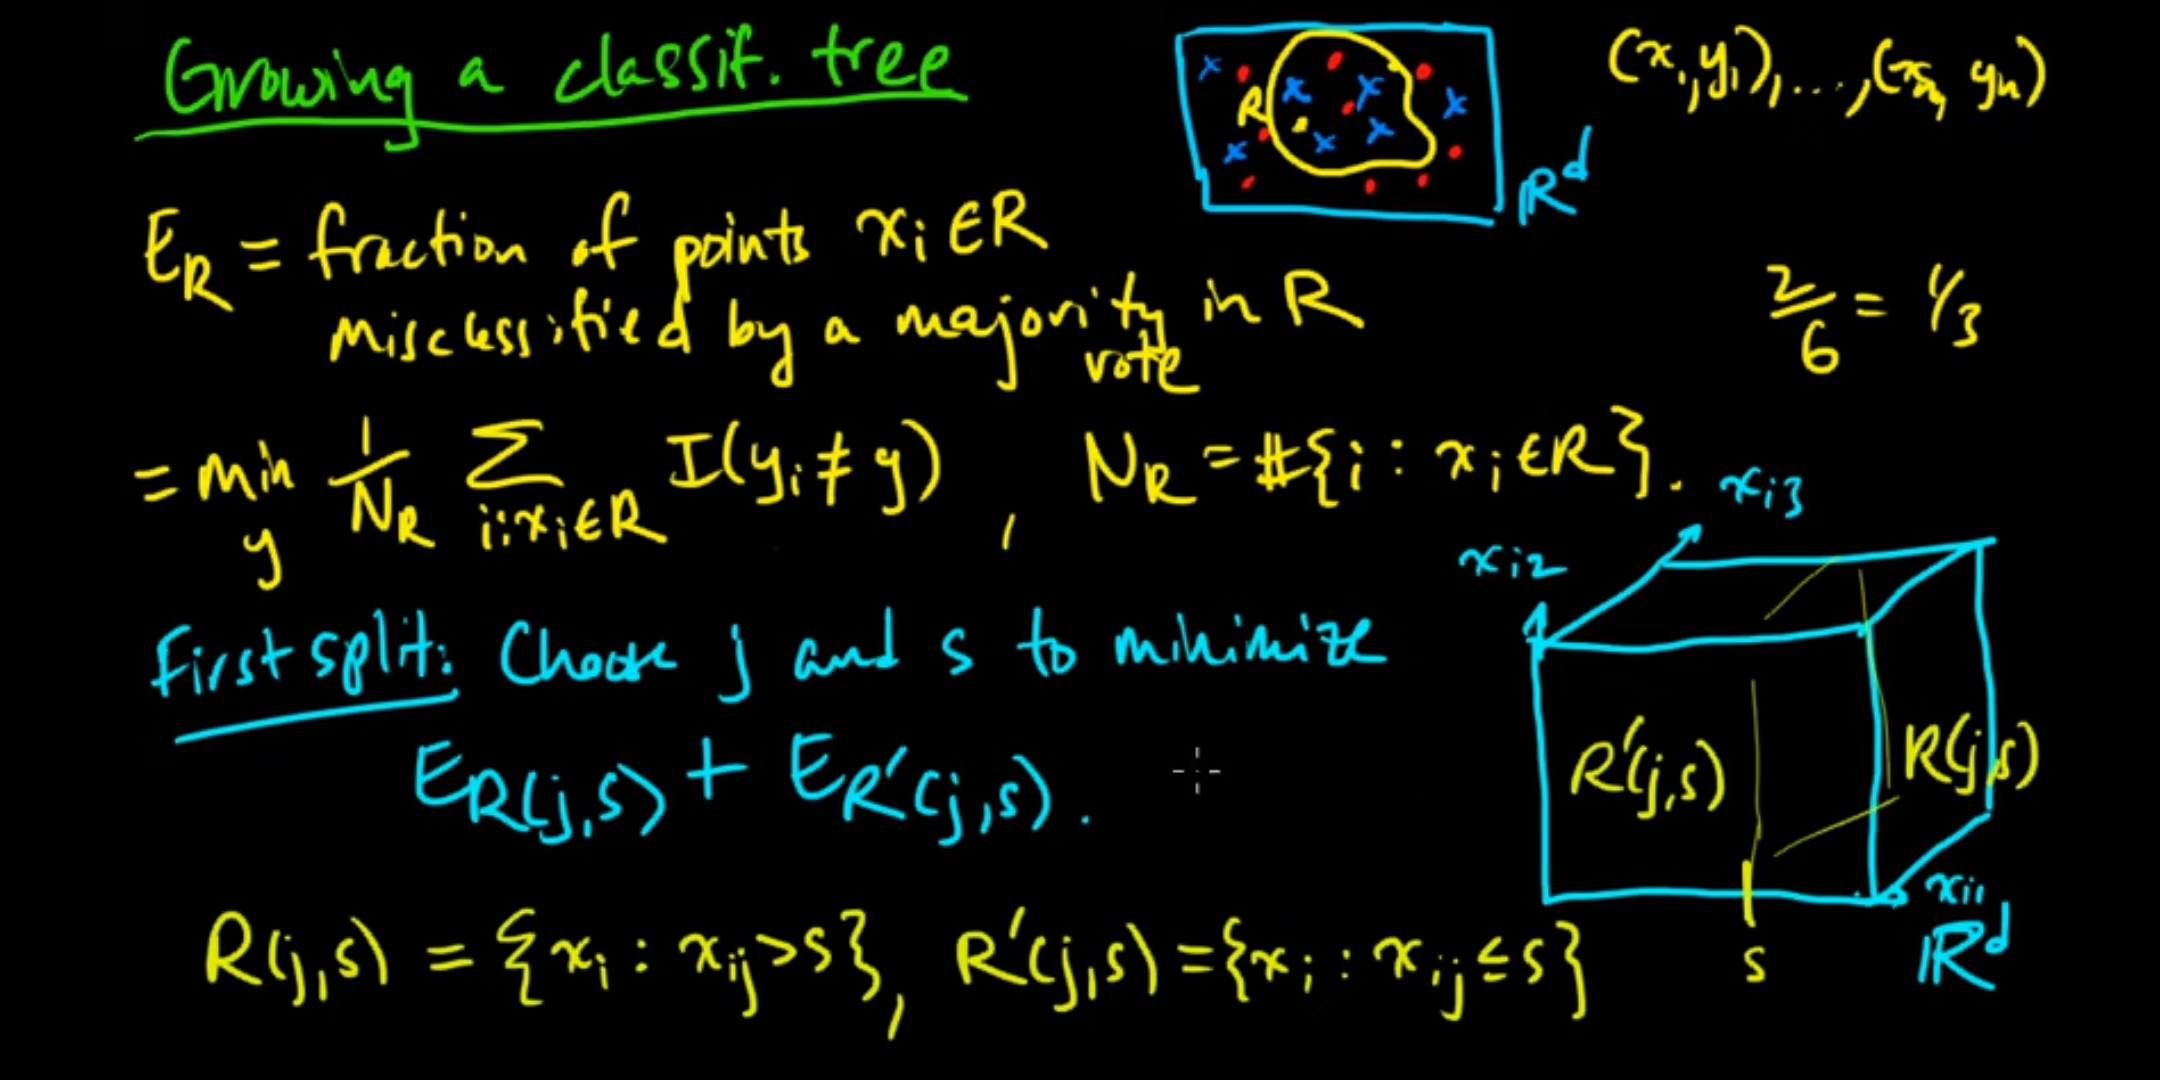 Growing a classif. tree
R
ℝ^d
(x₁,y₁),...,(xₙ,yₙ)
E_R = fraction of points xᵢ ∈ R
misclassified by a majority vote in R
2/6 = 1/3
= min_y 1/N_R Σ_{i:xᵢ∈R} I(yᵢ ≠ y) , N_R = #{i : xᵢ ∈ R}.
First split: Choose j and s to minimize
E_R(j,s) + E_R'(j,s).
x_{i3}
x_{i2}
R'(j,s)
R(j,s)
x_{i1}
s
ℝ^d
R(j,s) = {xᵢ : x_{ij} > s}, R'(j,s) = {xᵢ : x_{ij} ≤ s}